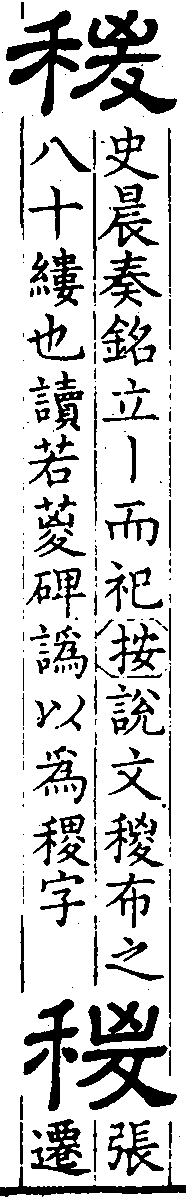 稯
史晨奏銘立丨而祀按說文稯布之
八十縷也讀若葼碑譌以為稷字
稯
張
遷